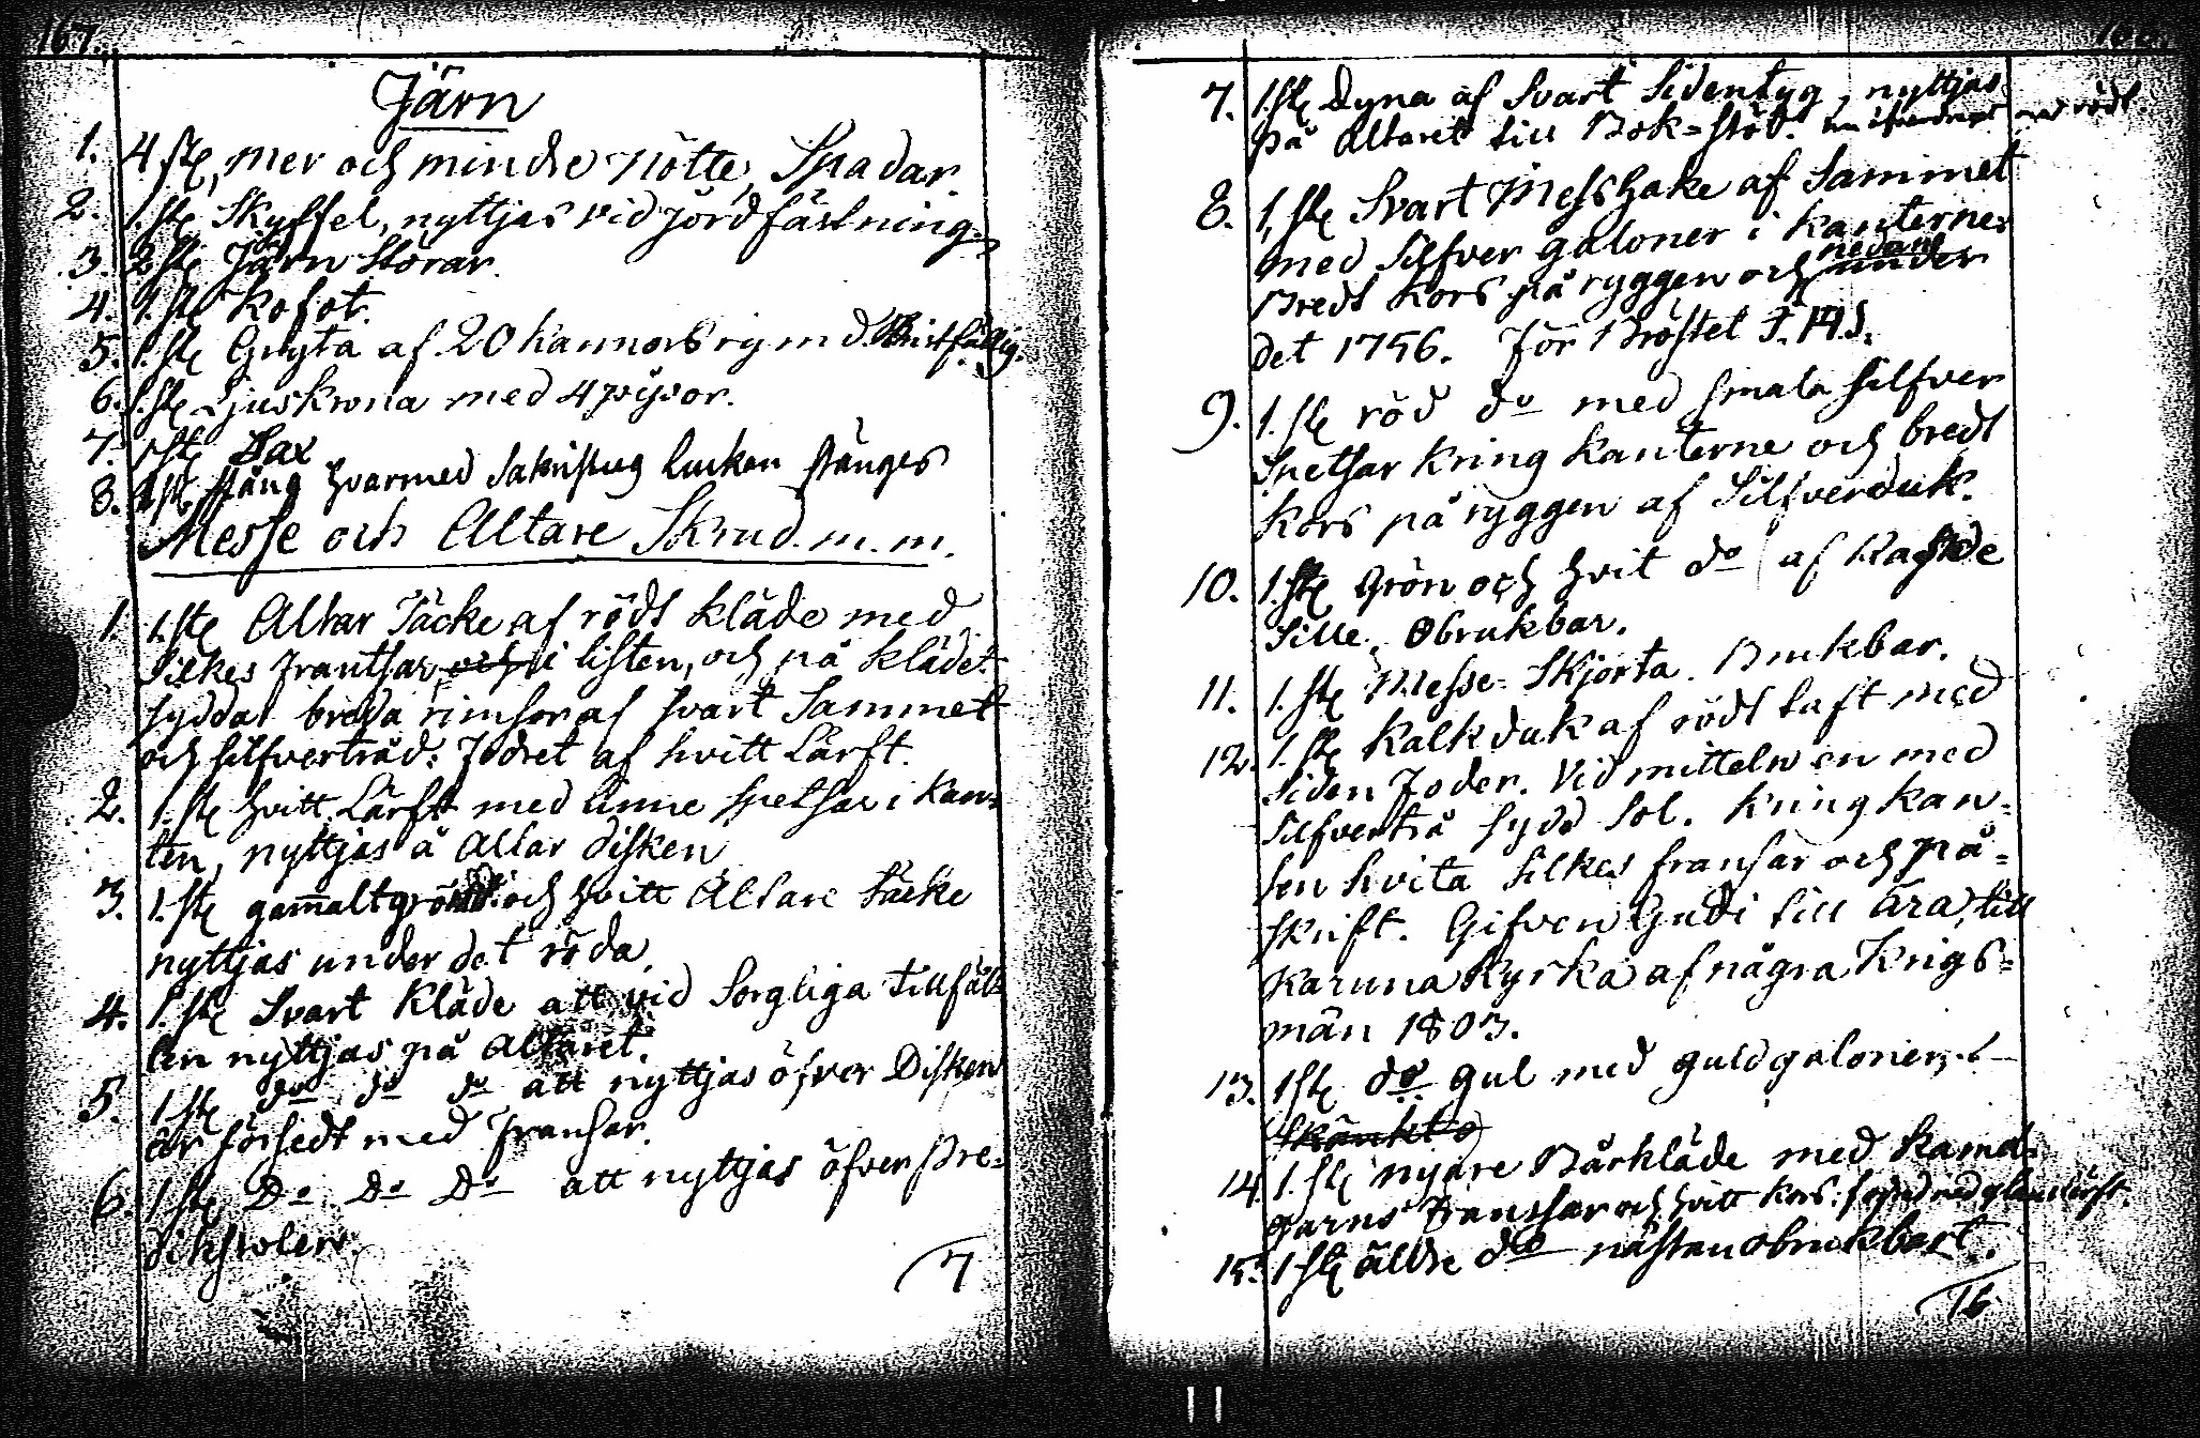 167.
Järn
1. 4 st, mer och mindre nötte, Spadar.
2. 1. st Skyffel, nyttjas vid jordfästning.
3. 2 st Järn Störar.
4. 1. st Kofot.
5. 1. st Gryta af 20 kannors rymd. Bristfällig.
6. 1. st Ljuskrona med 4 pipor.
7. 1 st Sax
8. 1 st. stång hvarmed Sakristug luckan stänges
Messe och Altare Skrud. m. m.
1. 1. st Altar Täcke af rödt kläde med
Silkes frantsar, och i listen, och på klädet
sydda breda rimsor af svart Sammet
och silfvertråd: Fodret af hvitt Lärft.
2. 1. st hvitt Lärft med linne spetsar i kan-
ten, nyttjas å Altar disken
3. 1. st gam̄alt grönt och hvitt Altare täcke
nyttjas under det röda.
4. 1. st Svart Kläde att vid Sorgliga tillfäl-
len nyttjas på altaret.
5. 1 st do do do att nyttjas öfver Disken
är försedt med fransar.
6. 1 st Do Do Do att nyttjas öfver Pre-
dikstolen.
7
7. 1. st Dyna af Svart Sidentyg, nyttjas
på Altaret till Bok-stöd. med rödt.
8. 1, st Svart Messhake af Sammet
med Silfver galoner i kanterne,
nedan
Bredt kors på ryggen och under
det 1756. För Bröstet I. H. S.
9. 1. st röd do med smala silfver
Spetsar kring kanterne och bredt
kors på ryggen af Silfverduk.
10. 1. st Grön och hvit do af
Sille. Obrukbar.
11. 1. st Messe-Skjorta. Brukbar.
12. 1. st Kalkduk af rödt taft med
Siden Foder. Vid mitteln en med
Silfverträ sydd Sol. Kring kan-
ten hvita Silkes fransar och på-
skrift. Gifven Gudi till ära, till
Karuna Kyrka af några Krigs-
män 1803.
13. 1 st do gul med guldgaloner,
skänkt
14. 1. st nyare Bårkläde med Kamel-
garns Franssar och hvitt kors.
15. 1 st äldre do nästan obrukbart.